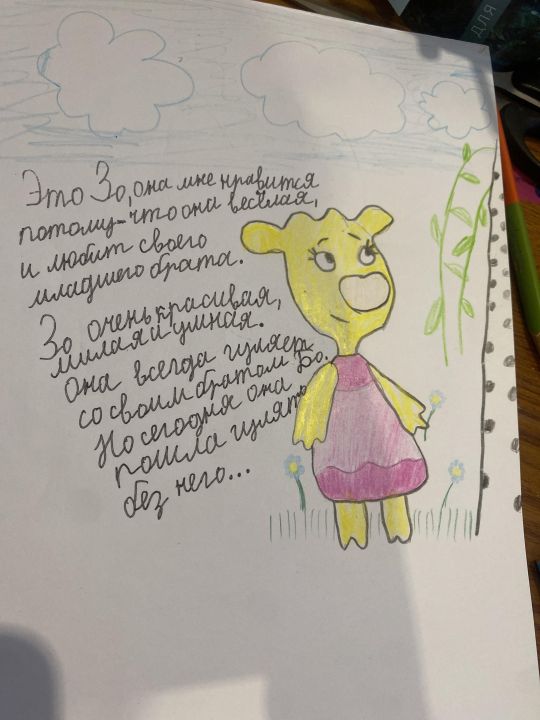 Это Зо, она мне нравится
потому-что она весёлая,
и любит своего
младшего брата.
Зо очень красивая,
милая и умная.
Она всегда гуляет
со своим братом Бо.
Но сегодня она
пошла гулять
без него...
для